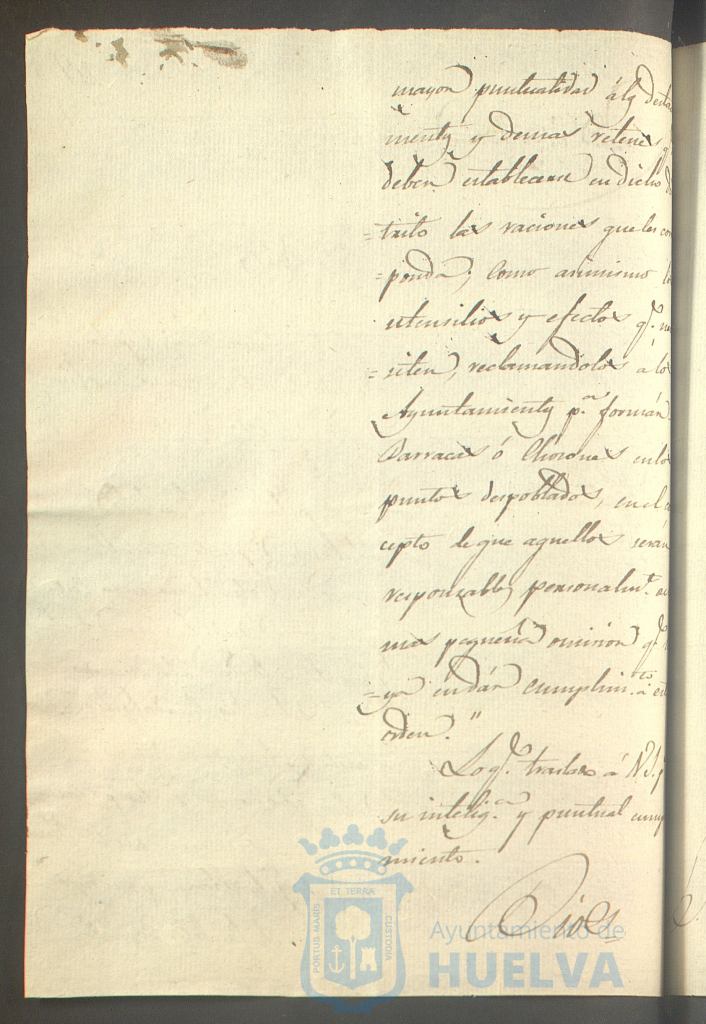 mayor puntualidad á lq desta
menty y demas retene q
deben establecerse en dicho
=trito las raciones que les co
=ponda; como asimismo l
utensilios y efectos q.e ne
=siten, reclamandolos á lo
Ayuntamienty p.a formar
Barracas ó Chozones en lo
puntos despoblados, en el
cepto de que aquellos serán
responzables personalm.te
mas pequeña omision q.e
=ya en dár cumplim.to á e
orden."
Lo q.e traslado á V.S. p
su intelig.a y puntual cump
miento.
Dios
PORTUS MARIS
ET TERRA
CUSTODIA
Ayuntamiento de
HUELVA